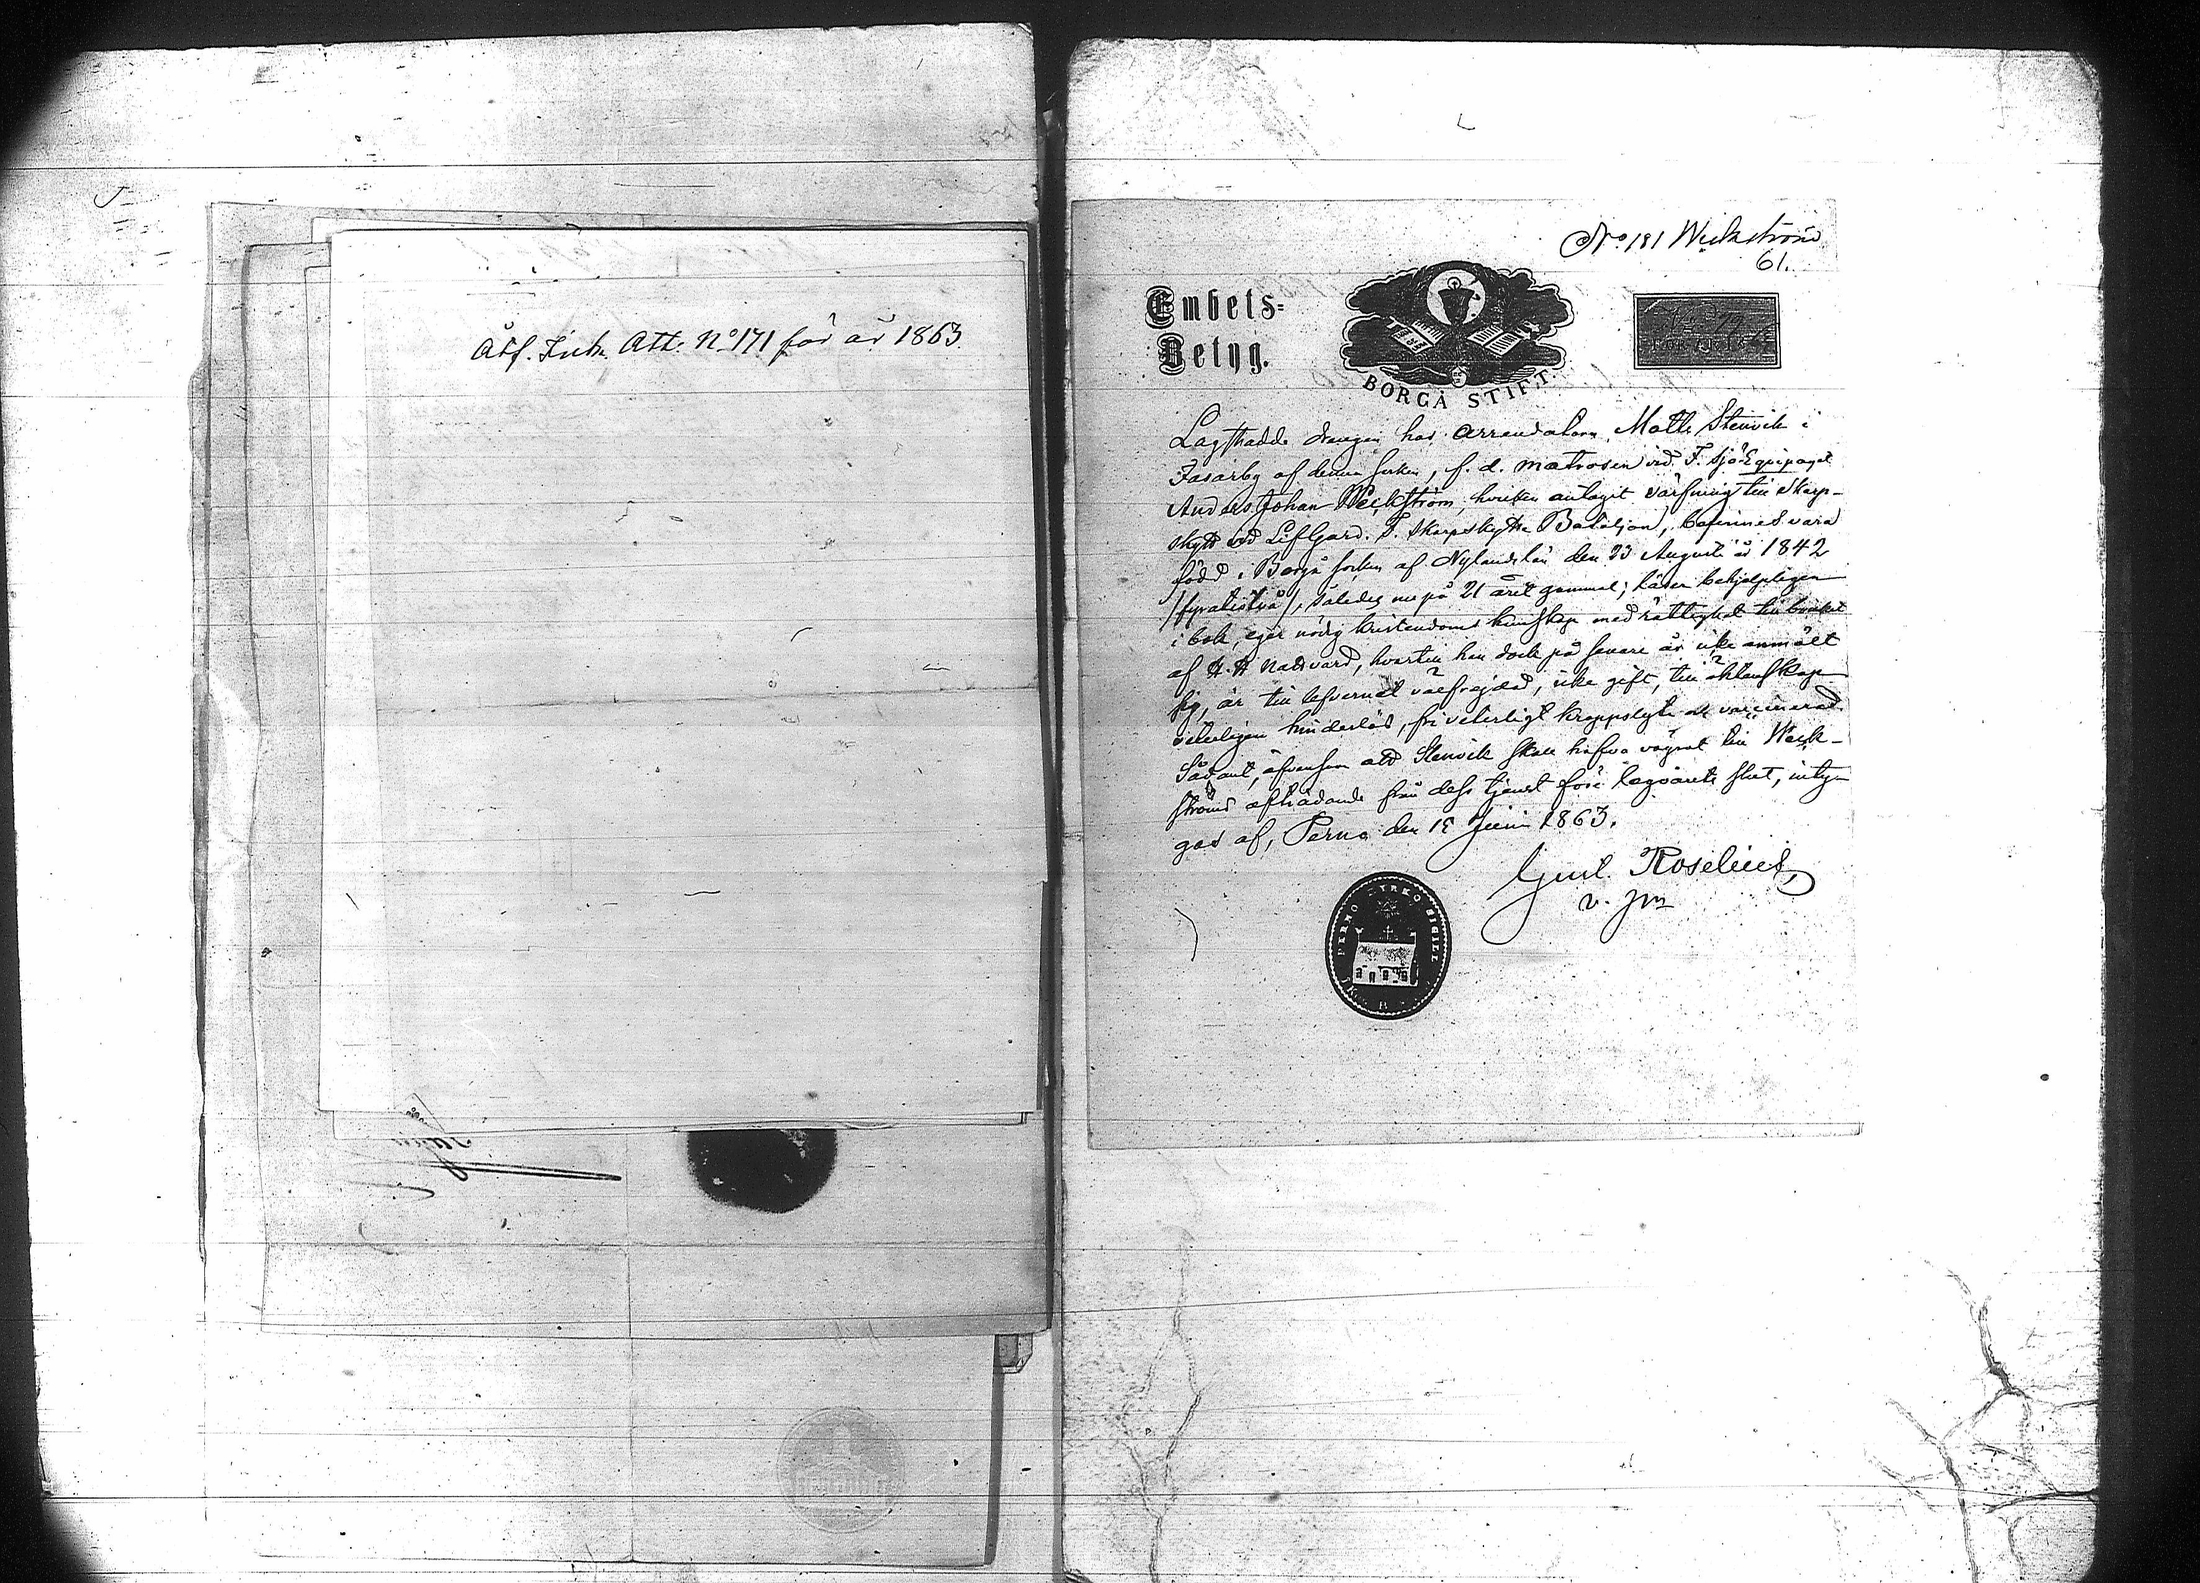 Att. N:o 171 för år 1863
N:o 181 Weckström
61.
Embets-
Betyg.
BORGÅ STIFT.
Lagstadde drengen hos Arrendatorn Matts Stenvik i
Isarby af denna socken, f. d. matrosen vid F. Sjö Equipaget
Anders Johan Weckström, hvilken antagit värfning till skarp-
skytt vid LifGard. F. Skarpskytte Bataljon, befinnes vara
född i Borgå socken af Nylands län den 23 Augusti år 1842
/fyratiotvå/, således nu på 21 året gammal; läser behjelpligen
i bok, eger nödig kristendoms kunskap med rättighet till bruket
af H. H. Nattvard, hvartill han dock på senare år icke anmält
sig, är till lefvernet välfrejdad, icke gift, till äktenskap
veterligen hinderlös, fri veterligt kroppslyte och vaccinerad.
Sådant, äfvensom att Stenvik skall hafva vägrat till Weck-
ströms afträdande från dess tjenst före legoårets slut, inty-
gas af, Perno den 15 Juni 1863.
Gust. Roselius,
v. p
PERNO KYRKO SIGILL